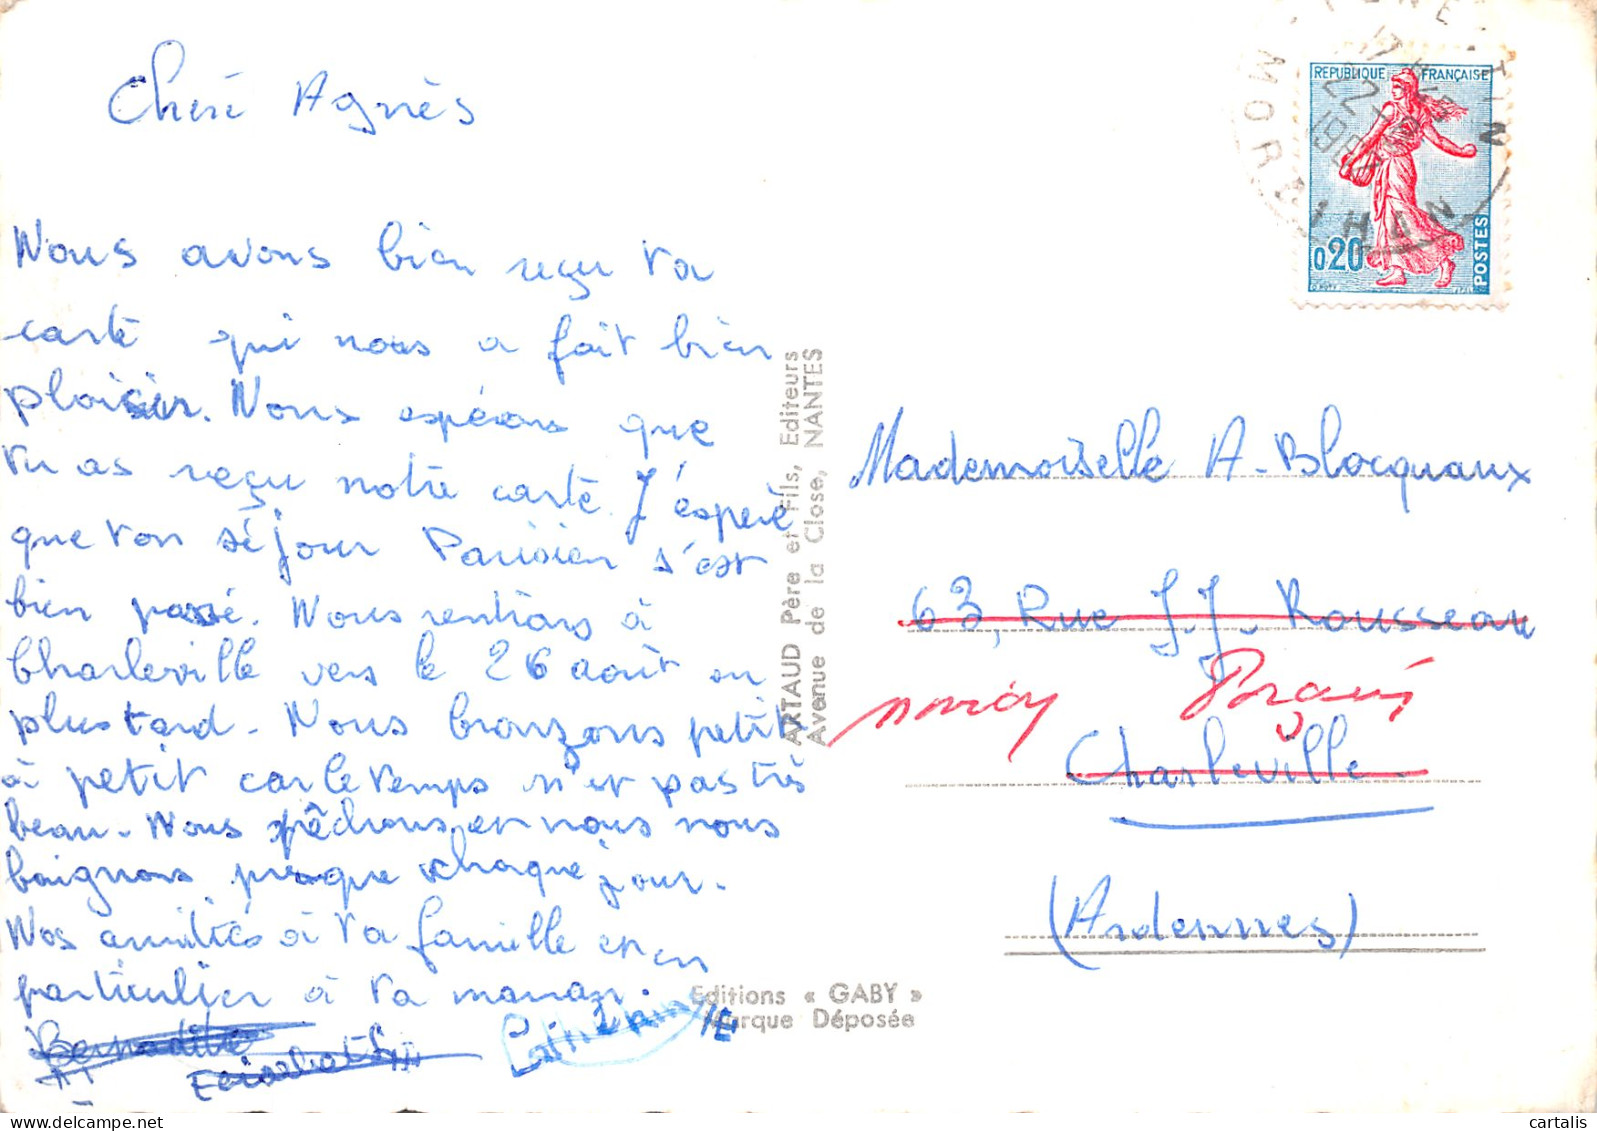 Cheré Agnès
Nous avons bien reçu ta
carte qui nous a fait bien
plaisir. Nous espérons que
tu as reçu notre carte. J'espère
que ton séjour Parisien s'est
bien passé. Nous rentrons à
Charleville vers le 26 août ou
plus tard. Nous bronzons petit
à petit car le temps n'est pas très
beau. Nous pêchons et nous nous
baignons presque chaque jour.
Nos amitiés à ta famille et en
particulier à ta maman.
Bernadette
Elisabeth
Catherine
ARTAUD Père et Fils, Editeurs
Avenue de la Close, NANTES
Editions « GABY »
Marque Déposée
REPUBLIQUE FRANÇAISE
0,20
POSTES
MORBIHAN
17 H 45
22
Mademoiselle A. Blocquaux
63, Rue J.J. Rousseau
Charleville
(Ardennes)
cartalis